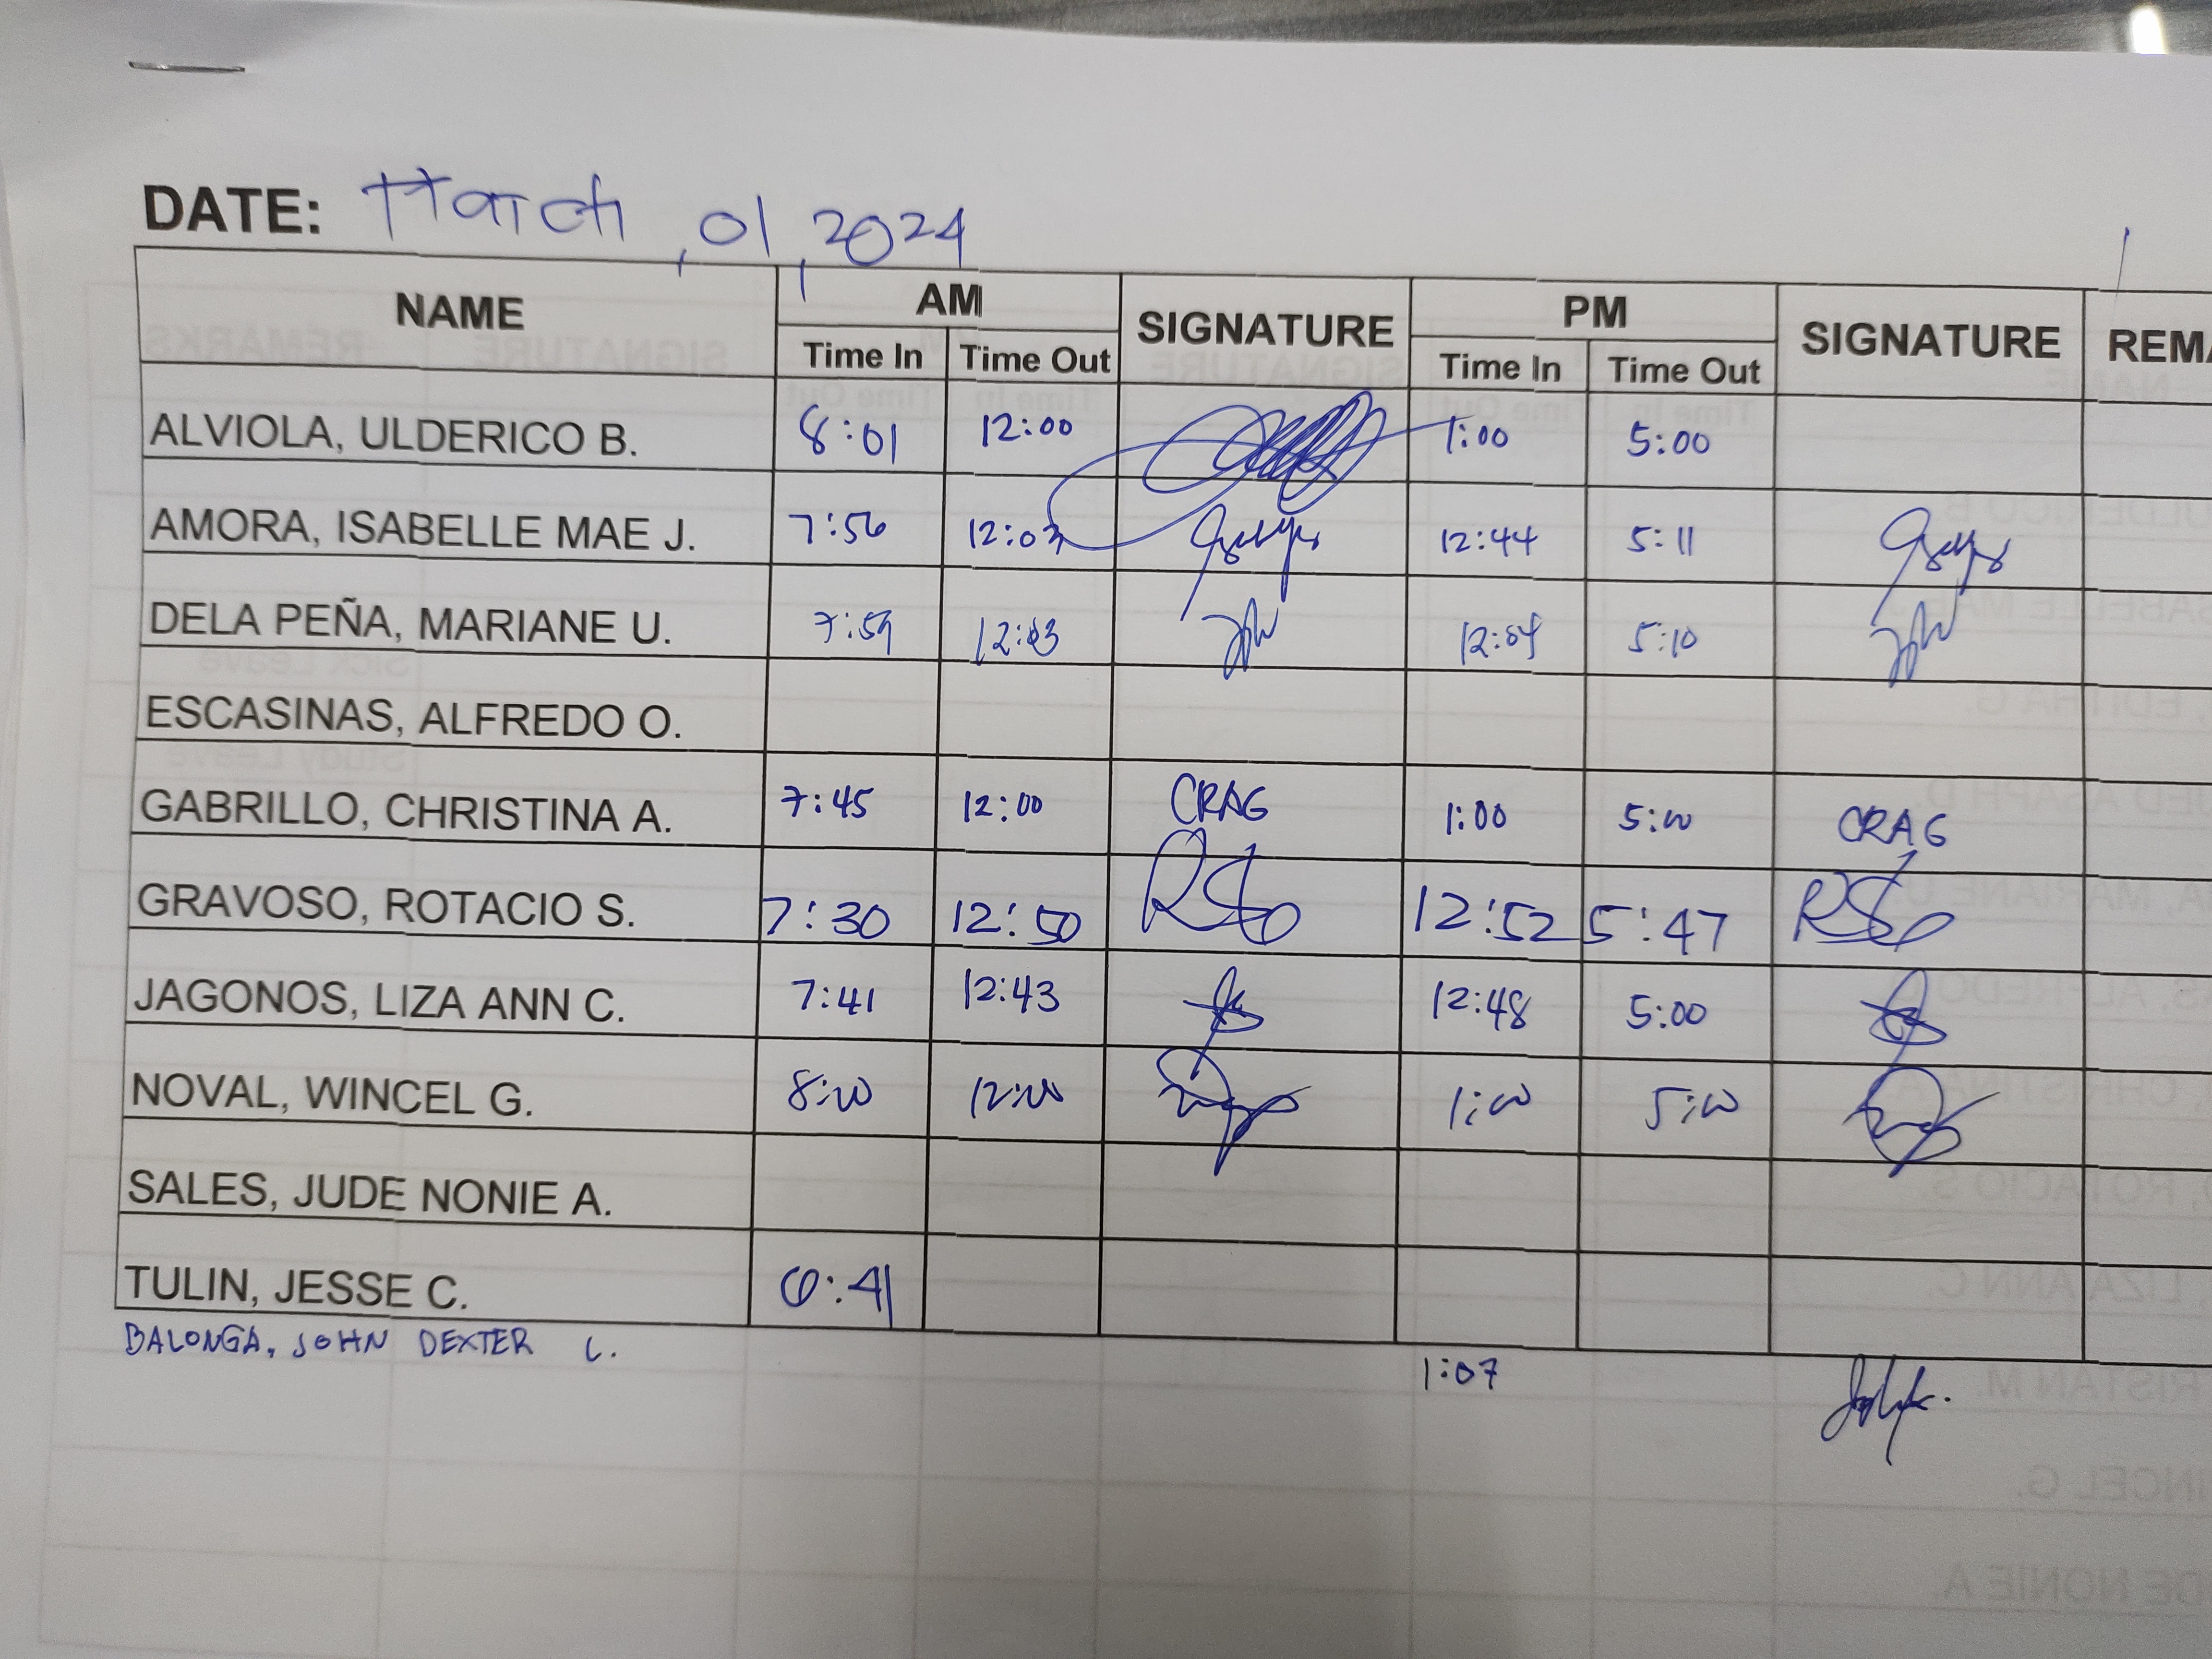 DATE: March, 01, 2024
NAME AM SIGNATURE PM SIGNATURE REMA
Time In Time Out Time In Time Out
ALVIOLA, ULDERICO B. 8:01 12:00 1:00 5:00
AMORA, ISABELLE MAE J. 7:56 12:03 12:44 5:11
DELA PEÑA, MARIANE U. 7:59 12:03 12:04 5:10
ESCASINAS, ALFREDO O.
GABRILLO, CHRISTINA A. 7:45 12:00 CRAG 1:00 5:00 CRAG
GRAVOSO, ROTACIO S. 7:30 12:50 12:52 5:47
JAGONOS, LIZA ANN C. 7:41 12:43 12:48 5:00
NOVAL, WINCEL G. 8:00 12:00 1:00 5:00
SALES, JUDE NONIE A.
TULIN, JESSE C. 6:41
BALONGA, JOHN DEXTER C. 1:07